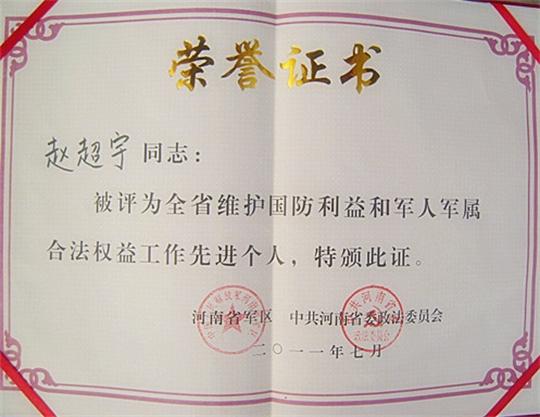 荣誉证书
赵超宇同志：
被评为全省维护国防利益和军人军属
合法权益工作先进个人，特颁此证。
河南省军区 中共河南省委政法委员会
二〇一一年七月